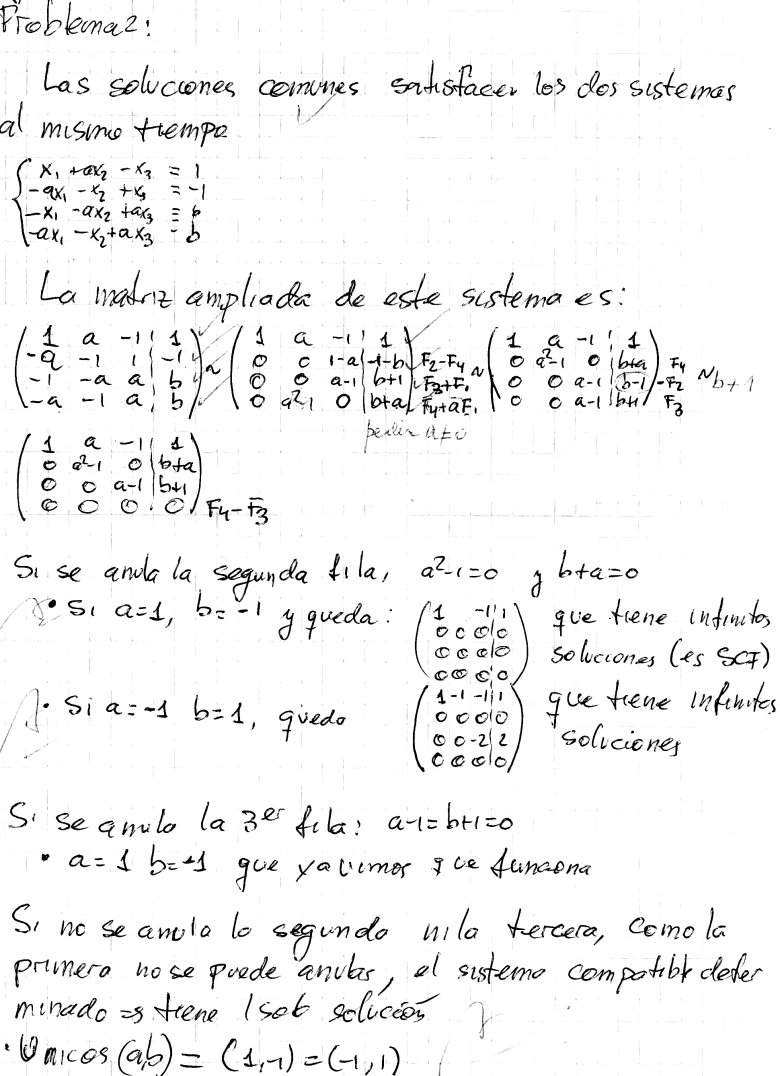 Problema 2:
Las soluciones comunes satisfacen los dos sistemas
al mismo tiempo
x₁ + ax₂ - x₃ = 1
-ax₁ - x₂ + x₃ = -1
-x₁ - ax₂ + ax₃ = b
-ax₁ - x₂ + ax₃ = b
La matriz ampliada de este sistema es:
( 1 a -1 | 1 ) ~ ( 1 a -1 | 1 ) ~ ( 1 a -1 | 1 )
( -a -1 1 | -1 ) ( 0 0 1-a | -1-b ) F₂-F₄ ( 0 a²-1 0 | b+a ) F₄
( -1 -a a | b ) ( 0 0 a-1 | b+1 ) F₃+F₁ ( 0 0 a-1 | b-1 ) -F₂ ~ b+1
( -a -1 a | b ) ( 0 a²-1 0 | b+a ) F₄+aF₁ ( 0 0 a-1 | b+1 ) F₃
a≠0
( 1 a -1 | 1 )
( 0 a²-1 0 | b+a )
( 0 0 a-1 | b+1 )
( 0 0 0 | 0 ) F₄-F₃
Si se anula la segunda fila, a²-1=0 y b+a=0
• Si a=1, b=-1 y queda: ( 1 -1 | 1 ) que tiene infinitos
( 0 0 0 | 0 )
( 0 0 0 | 0 ) soluciones (es SCI)
( 0 0 0 | 0 )
• Si a=-1 b=1, queda ( 1 -1 -1 | 1 ) que tiene infinitas
( 0 0 0 | 0 ) soluciones
( 0 0 -2 | 2 )
( 0 0 0 | 0 )
Si se anula la 3er fila: a-1=b+1=0
• a=1 b=-1 que ya vimos que funciona
Si no se anula la segunda ni la tercera, como la
primera no se puede anular, el sistema compatible deter
minado => tiene 1 sola solución
• Únicos (a,b) = (1,-1) = (-1,1)